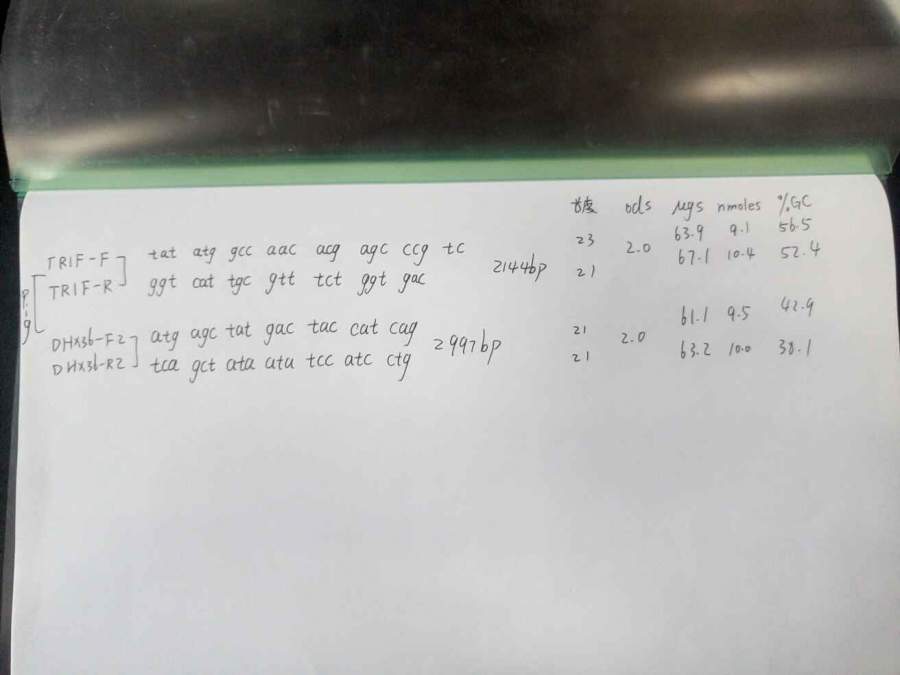 长度 ods μgs nmoles %GC
TRIF-F tat atg gcc aac acg agc ccg tc 23 2.0 63.9 9.1 56.5
TRIF-R ggt cat tgc gtt tct ggt gac 2144bp 21 67.1 10.4 52.4
Pig
DHX36-F2 atg agc tat gac tac cat cag 2997bp 21 2.0 61.1 9.5 42.9
DHX36-R2 tca gct ata ata tcc atc ctg 21 63.2 10.0 38.1